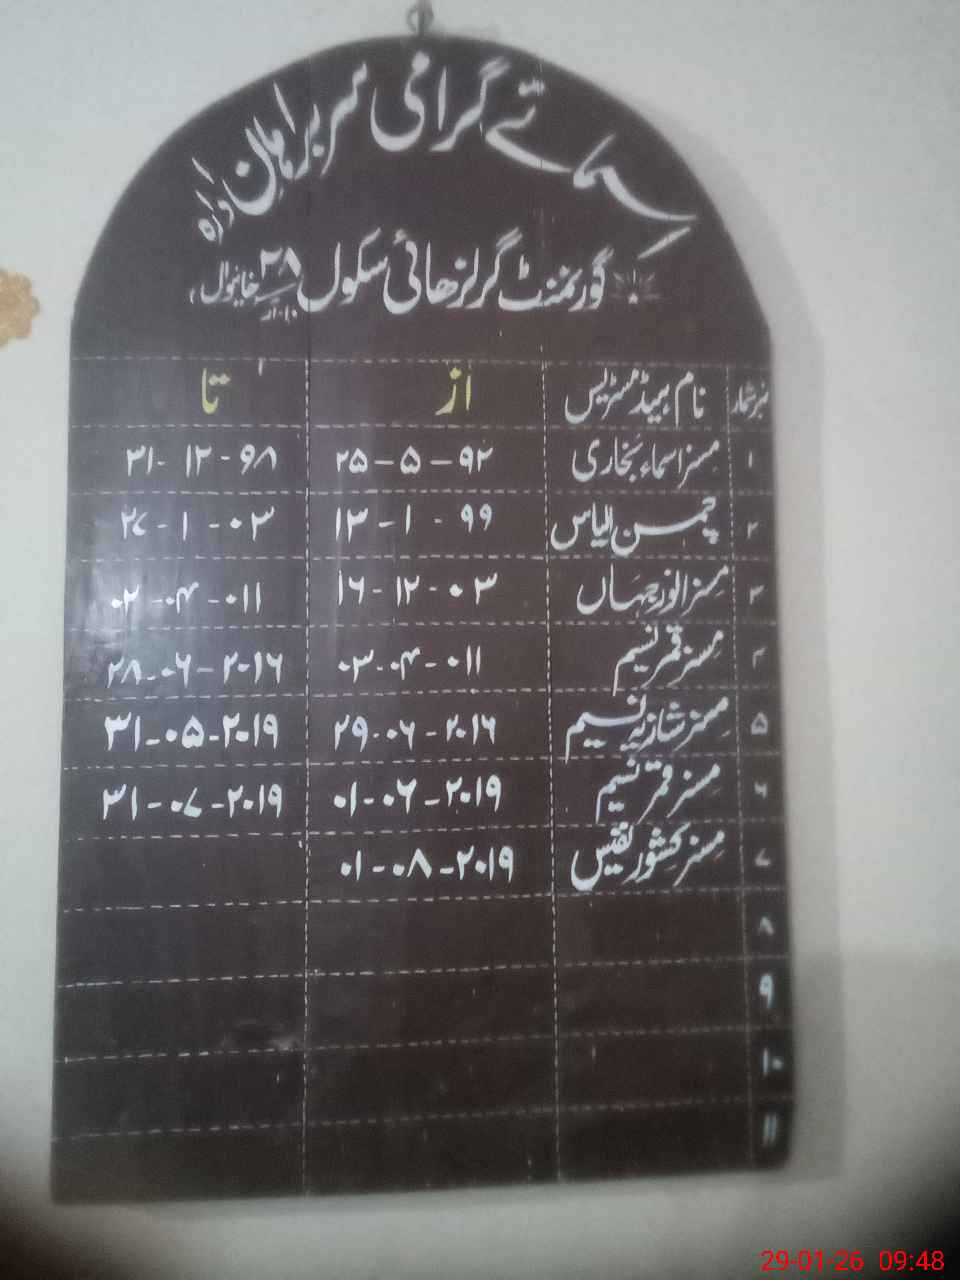 اسمائے گرامی سربراہان ادارہ
گورنمنٹ گرلز ھائی سکول ۲۸/۱۰.آر خانیوال
نمبر شمار نام ہیڈ مسٹریس از تا
۱ مسز اسماء بخاری ۲۵-۵-۹۲ ۳۱-۱۲-۹۸
۲ چمن الیاس ۱۳-۱-۹۹ ۲۷-۱-۰۳
۳ مسز انور جہاں ۱۶-۱۲-۰۳ ۰۲-۰۴-۰۱۱
۴ مسز قمر نسیم ۰۳-۰۴-۰۱۱ ۲۸-۰۶-۲۰۱۶
۵ مسز شازیہ نسیم ۲۹-۰۶-۲۰۱۶ ۳۱-۰۵-۲۰۱۹
۶ مسز قمر نسیم ۰۱-۰۶-۲۰۱۹ ۳۱-۰۷-۲۰۱۹
۷ مسز کشور نفیس ۰۱-۰۸-۲۰۱۹
۸
۹
۱۰
۱۱
29-01-26 09:48